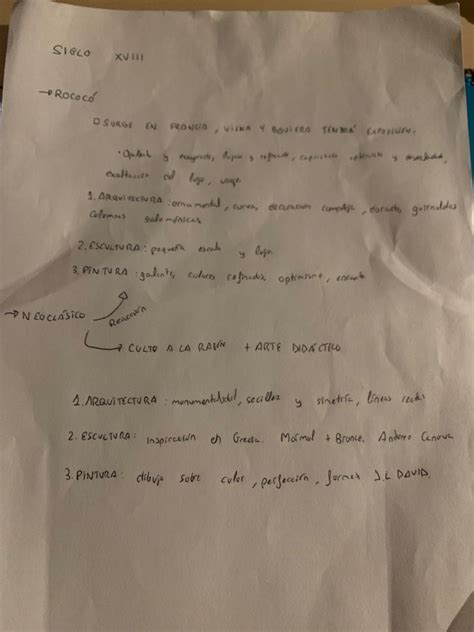 SIGLO XVIII
→ ROCOCÓ
SURGE EN FRANCIA, VIENA Y BAVIERA TENDRÁ EXPOSICIÓN.
y refinado, y
exaltación del lujo,
1. ARQUITECTURA: ornamental, curva, decoración compleja, guirnaldas
columnas salomónicas
2. ESCULTURA: pequeña escala y lujo
3. PINTURA: galante, colores refinados, optimismo, encanto
→ NEOCLÁSICO
Reacción
→ CULTO A LA RAZÓN + ARTE DIDÁCTICO
1. ARQUITECTURA: monumentalidad, y simetría, líneas rectas
2. ESCULTURA: inspiración en Grecia. Mármol + Bronce. Antonio Canova
3. PINTURA: dibujo sobre color, perfección, formas J.L DAVID.